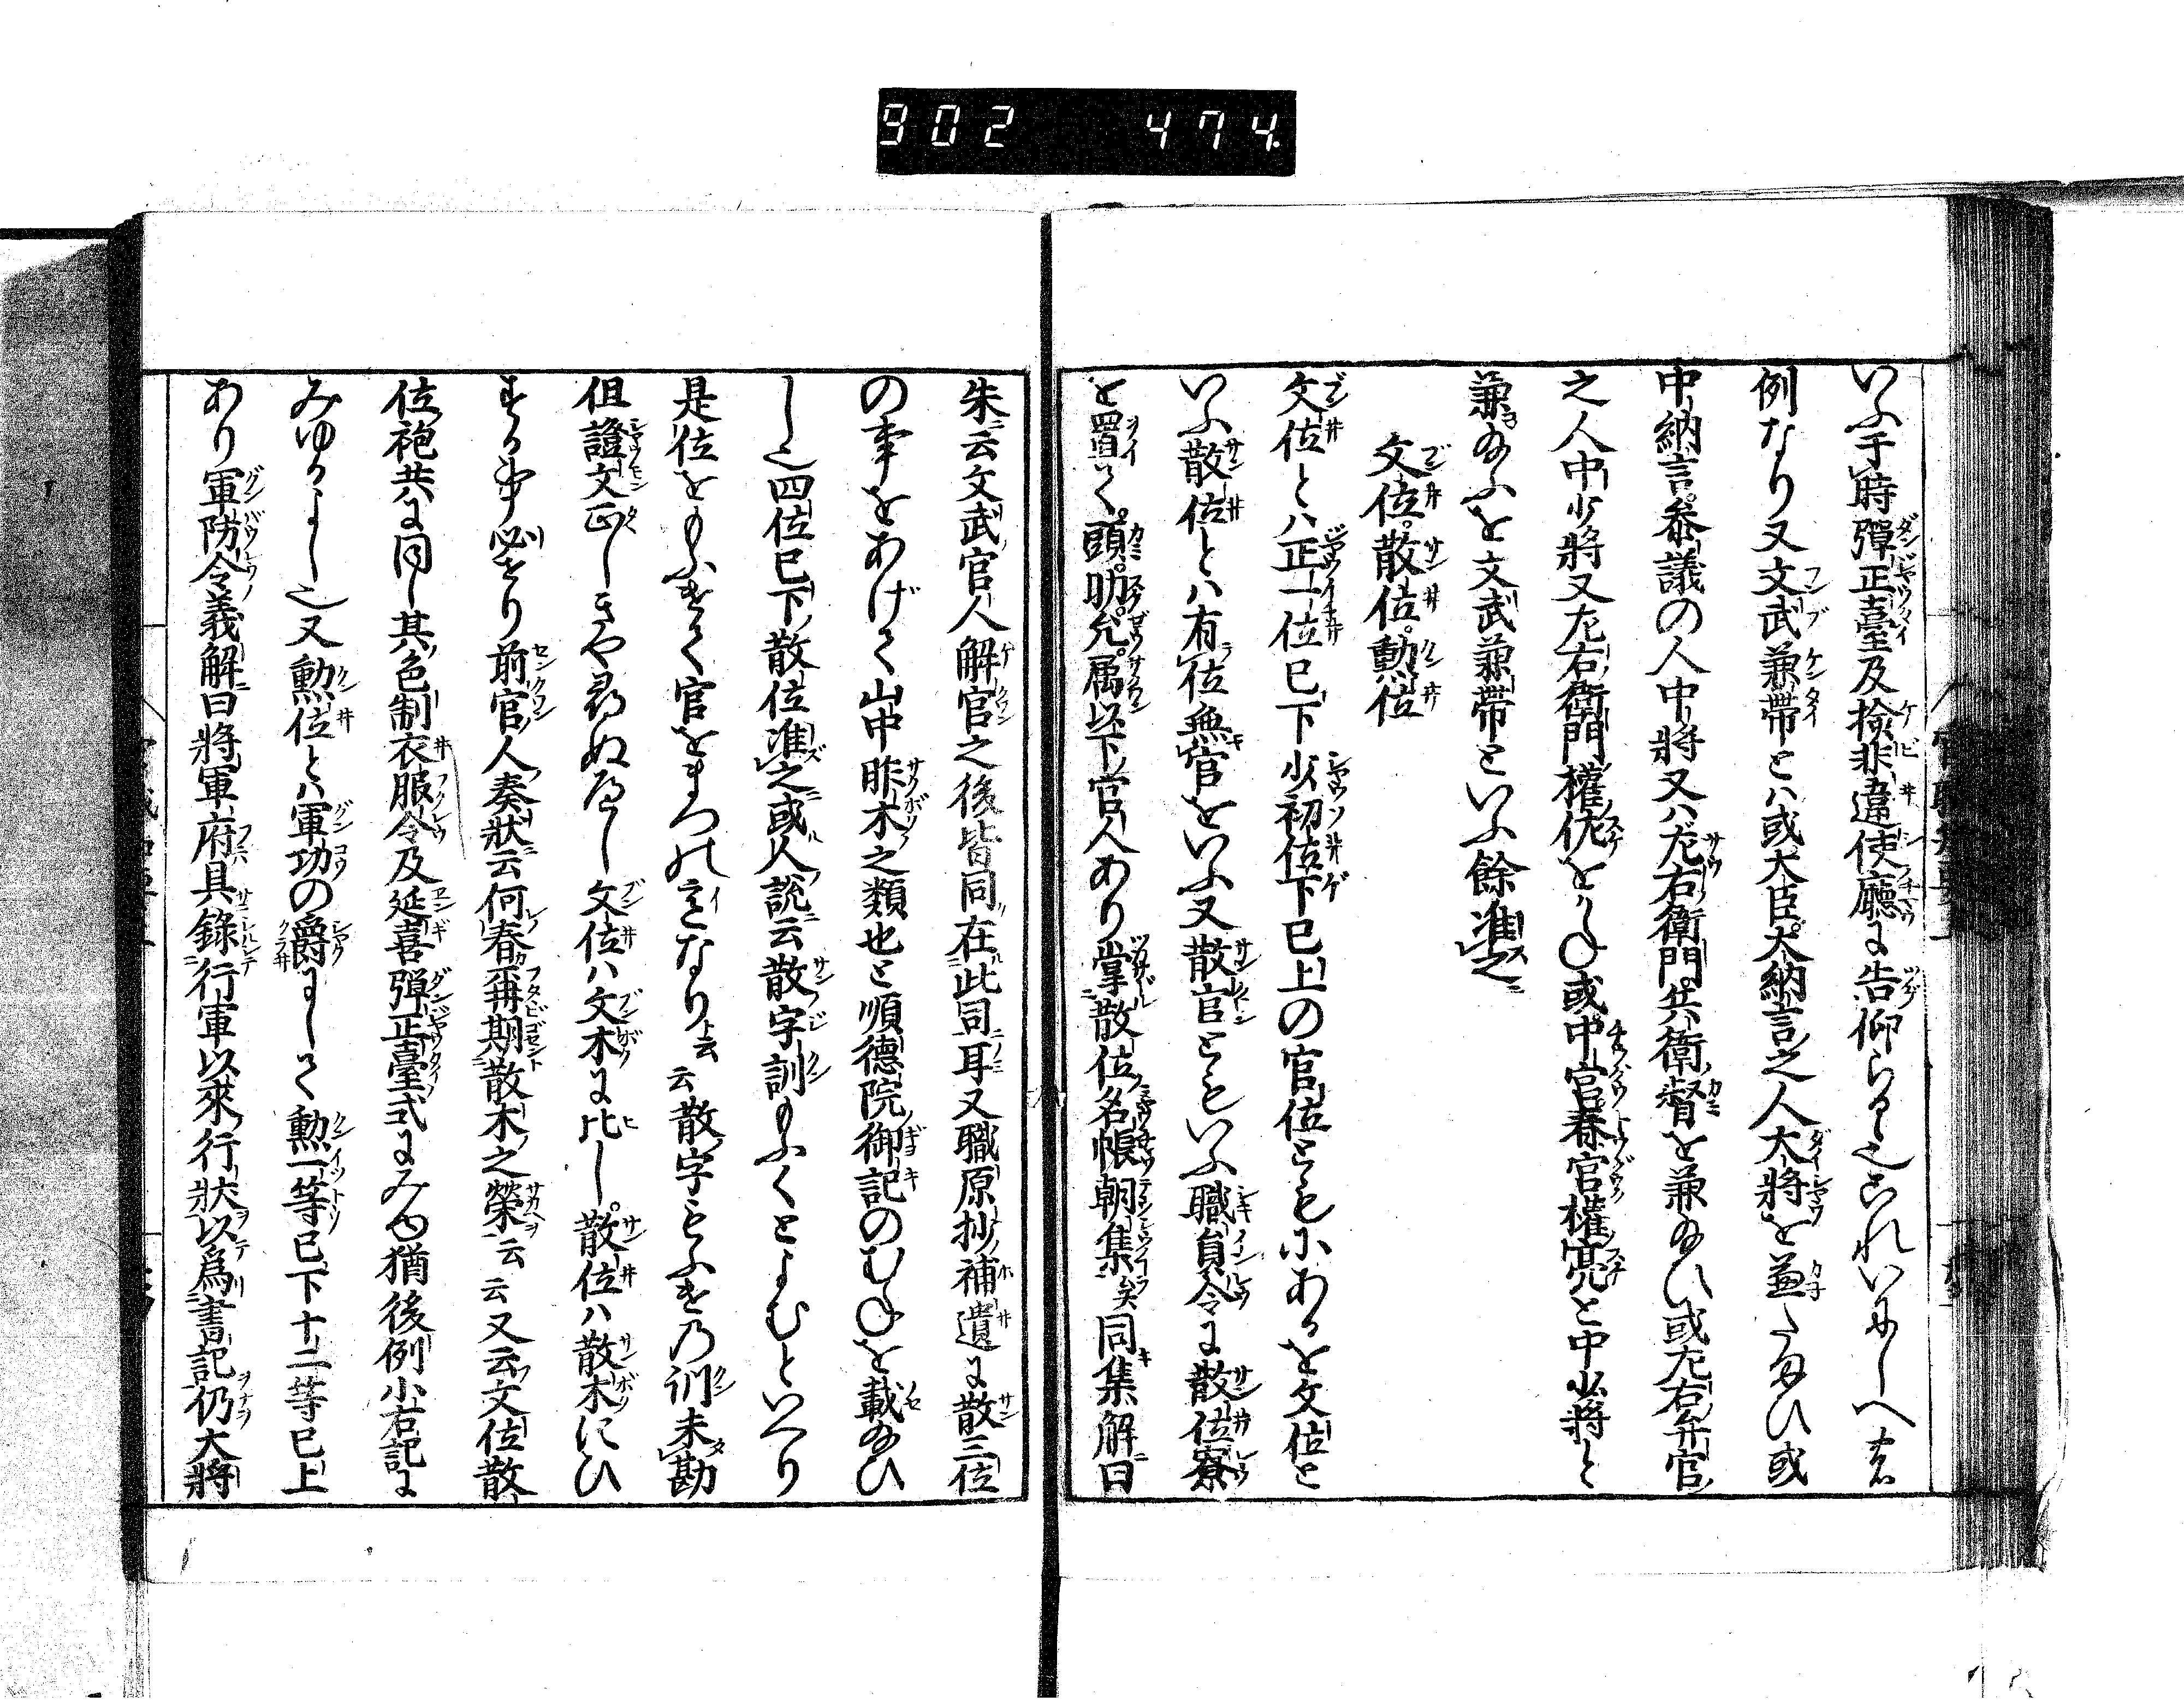 902 474.
いふ于時彈正臺及撿非違使廳に告仰らる也これいにしへの
例なり又文武兼帶とハ或大臣大納言之人大將を兼たまひ或
中納言參議の人中將又ハ左右衛門兵衛督を兼給ひ或左右弁官
之人中少將又左右衛門權佐をかね或中宮春宮權亮と中少將と
兼給ふを文武兼帶といふ餘準之
文位散位勳位
文位とハ正一位已下少初位下已上の官位ともにあるを文位と
いふ散位とハ有位無官をいふ又散官ともいふ職員令に散位寮
を置く頭助允属以下官人あり掌散位名帳朝集矣同集解曰
朱云文武官人解官之後皆同在此司耳又職原抄補遺に散三位
の事をあげて山中昨木之類也と順德院御記のむねを載給ひ
し也四位已下散位準之或人説云散字訓もふくとよむといへり
是位をもふけて官をまつのこゝろなり云云散字もふけの訓未勘
但證文正しきや尋ぬべし文位ハ文木に比し散位ハ散木にひ
する事必せり前官人奏狀云何春再期散木之榮云云又云文位散
位袍共に同し其色制衣服令及延喜彈正臺式にみゆ猶後例小右記に
みゆるよし也又勳位とハ軍功の爵にして勳一等已下十二等已上
あり軍防令義解曰將軍府具錄行軍以來行狀以爲書記仍大將